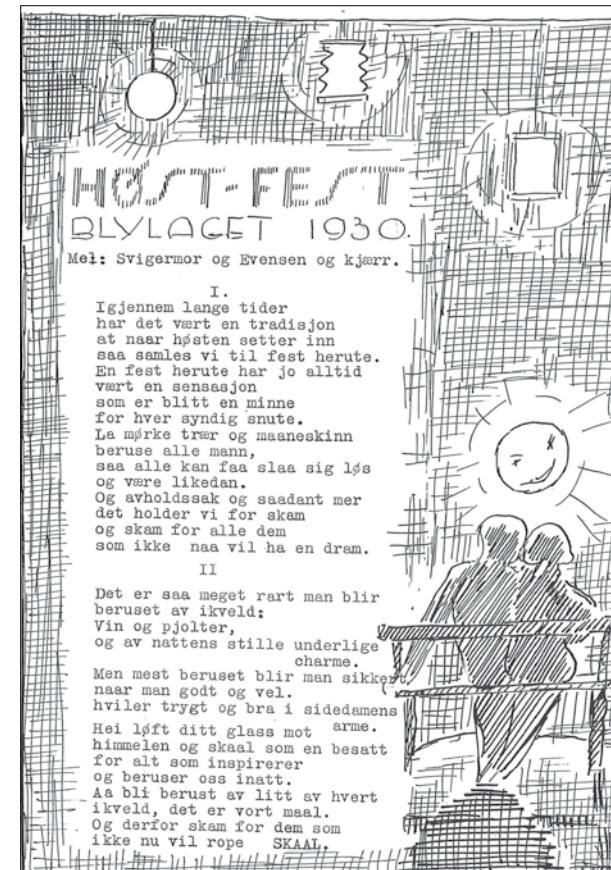 HØST-FEST
BLYLAGET 1930.
Mel: Svigermor og Evensen og kjærr.
I.
Igjennem lange tider
har det vært en tradisjon
at naar høsten setter inn
saa samles vi til fest herute.
En fest herute har jo alltid
vært en sensasjon
som er blitt en minne
for hver syndig snute.
La mørke trær og maaneskinn
beruse alle mann,
saa alle kan faa slaa sig løs
og være likedan.
Og avholdssak og saadant mer
det holder vi for skam
og skam for alle dem
som ikke naa vil ha en dram.
II
Det er saa meget rart man blir
beruset av ikveld:
Vin og pjolter,
og av nattens stille underlige
charme.
Men mest beruset blir man sikkert
naar man godt og vel.
hviler trygt og bra i sidedamens
arme.
Hei løft ditt glass mot
himmelen og skaal som en besatt
for alt som inspirerer
og beruser oss inatt.
Aa bli berust av litt av hvert
ikveld, det er vort maal.
Og derfor skam for dem som
ikke nu vil rope SKAAL.